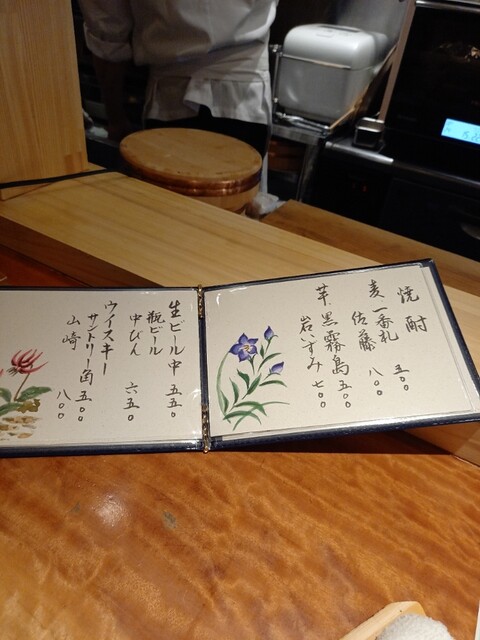 焼酎
麦 一番札 五〇〇
佐藤 八〇〇
芋 黒霧島 五〇〇
岩いずみ 七〇〇
生ビール中 五五〇
瓶ビール
中びん 六五〇
ウイスキー
サントリー角 五〇〇
山崎 八〇〇